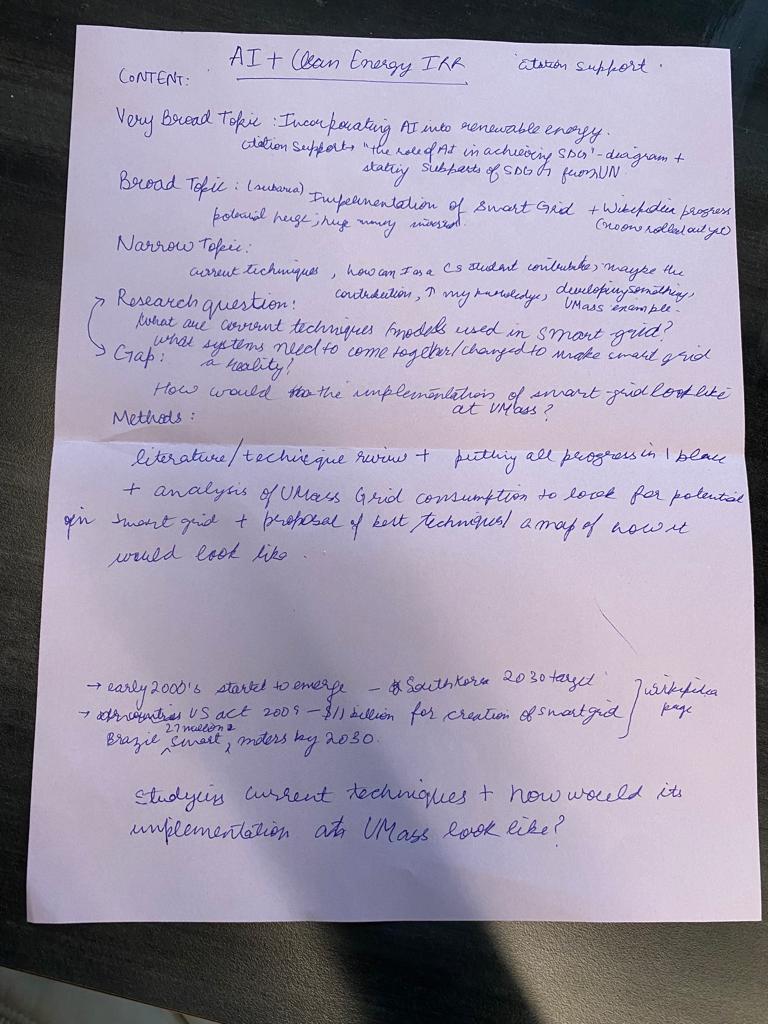 AI + Clean Energy IRR citation support.
CONTENT:
Very Broad Topic : Incorporating AI into renewable energy.
citation support → "the role of AI in achieving SDGs" - diagram +
stating subparts of SDG from UN
Broad Topic : (subarea) Implementation of Smart Grid + Wikipedia progress
potential huge; huge money invested. (no one rolled out yet)
Narrow Topic:
current techniques, how can I as a CS student contribute, maybe the
contribution, ↑ my knowledge, developing something,
UMass example.
→ Research question:
What are current techniques / models used in smart grid?
→ Gap: what systems need to come together/changed to make smart grid
a reality?
How would the implementation of smart grid look like
at UMass?
Methods:
literature/technique review + putting all progress in 1 place
+ analysis of UMass Grid consumption to look for potential
in smart grid + proposal of best techniques/ a map of how it
would look like.
→ early 2000's started to emerge - South Korea 2030 target
→ US act 2009 - $11 billion for creation of smart grid
wikipedia page
Brazil 27 million smart meters by 2030.
Studying current techniques + how would its
implementation at UMass look like?